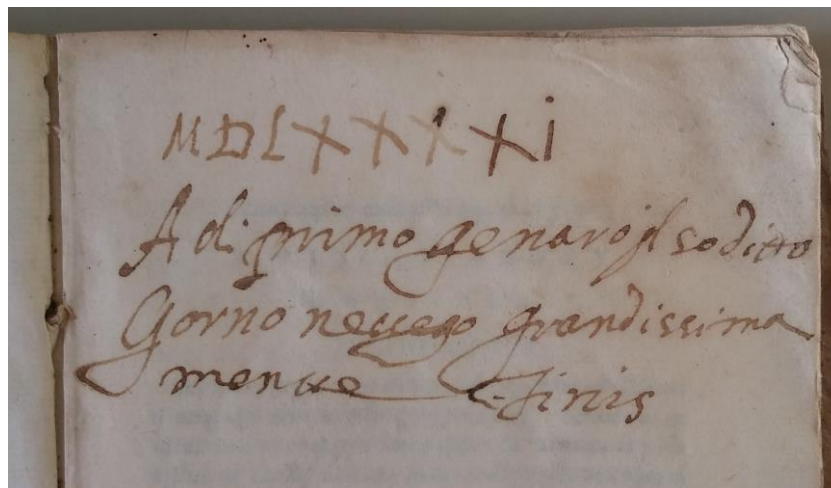 MDLXXXXI
A di primo genaro jl soditto
Gorno neuego grandissima
mentte finis